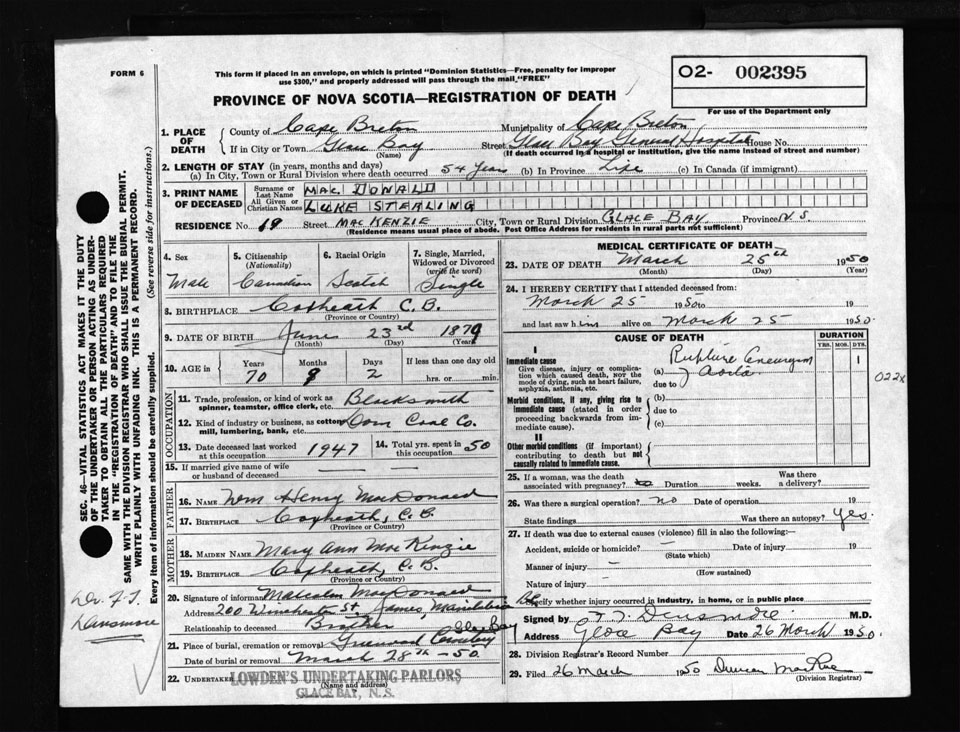 FORM 6
This form if placed in an envelope, on which is printed "Dominion Statistics—Free, penalty for improper
use $300," and properly addressed will pass through the mail "FREE"
O2- 002395
PROVINCE OF NOVA SCOTIA—REGISTRATION OF DEATH
For use of the Department only
1. PLACE OF DEATH
County of Cape Breton Municipality of Cape Breton
If in City or Town Glace Bay Street Glace Bay General Hospital House No.
(Name) (If death occurred in a hospital or institution, give the name instead of street and number)
2. LENGTH OF STAY (in years, months and days)
(a) In City, Town or Rural Division where death occurred 54 years (b) In Province Life (c) In Canada (if immigrant)
3. PRINT NAME OF DECEASED
Surname or Last Name MAC DONALD
All Given or Christian Names LUKE STERLING
RESIDENCE No. 19 Street MAC KENZIE City, Town or Rural Division GLACE BAY Province N.S.
(Residence means usual place of abode. Post Office Address for residents in rural parts not sufficient)
4. Sex Male
5. Citizenship (Nationality) Canadian
6. Racial Origin Scotch
7. Single, Married, Widowed or Divorced (write the word) Single
8. BIRTHPLACE Coxheath C.B.
(Province or Country)
9. DATE OF BIRTH June 23rd 1879
(Month) (Day) (Year)
10. AGE in Years 70 Months 9 Days 2 If less than one day old
hrs. or min.
OCCUPATION
11. Trade, profession or kind of work as spinner, teamster, office clerk, etc. Blacksmith
12. Kind of industry or business, as cotton mill, lumbering, bank, etc. Dom Coal Co.
13. Date deceased last worked at this occupation 1947
14. Total yrs. spent in this occupation 50
15. If married give name of wife or husband of deceased
FATHER
16. NAME Wm Henry MacDonald
17. BIRTHPLACE Coxheath, C.B.
(Province or Country)
MOTHER
18. MAIDEN NAME Mary Ann MacKenzie
19. BIRTHPLACE Coxheath, C.B.
(Province or Country)
20. Signature of informant Malcolm MacDonald
Address 200 Winchester St, James, Manitoba
Relationship to deceased Brother
21. Place of burial, cremation or removal Greenwood Cemetery Glace Bay
Date of burial or removal March 28th - 50
22. UNDERTAKER LOWDEN'S UNDERTAKING PARLORS
(Name and address)
GLACE BAY, N.S.
MEDICAL CERTIFICATE OF DEATH
23. DATE OF DEATH March 25th 1950
(Month) (Day) (Year)
24. I HEREBY CERTIFY that I attended deceased from:
March 25 1950 to 19
and last saw him alive on March 25 1950.
CAUSE OF DEATH
DURATION
YRS. MOS. DYS.
I
Immediate cause
Give disease, injury or complication which caused death, nor the mode of dying, such as heart failure, asphyxia, asthenia, etc.
(a) Rupture Aneurysm of Aorta 1
due to
022x
Morbid conditions, if any, giving rise to immediate cause (stated in order proceeding backwards from immediate cause).
(b)
due to
(c)
II
Other morbid conditions (if important) contributing to death but not causally related to immediate cause.
25. If a woman, was the death associated with pregnancy? Duration weeks. Was there a delivery?
26. Was there a surgical operation? no Date of operation 19
State findings Was there an autopsy? Yes.
27. If death was due to external causes (violence) fill in also the following:
Accident, suicide or homicide? – Date of injury 19
(State which)
Manner of injury –
(How sustained)
Nature of injury –
Specify whether injury occurred in industry, in home, or in public place
Signed by F. T. Densmore M.D.
Address Glace Bay Date 26 March 1950.
28. Division Registrar's Record Number
29. Filed 26 March 1950 Duncan MacRae
(Division Registrar)
SEC. 46—VITAL STATISTICS ACT MAKES IT THE DUTY
OF THE UNDERTAKER OR PERSON ACTING AS UNDERTAKER TO OBTAIN ALL THE PARTICULARS REQUIRED
IN THE "REGISTRATION OF DEATH" AND TO FILE THE
SAME WITH THE DIVISION REGISTRAR WHO SHALL ISSUE THE BURIAL PERMIT.
WRITE PLAINLY WITH UNFADING INK. THIS IS A PERMANENT RECORD.
Every item of information should be carefully supplied. (See reverse side for instructions.)
Dr. F. T.
Densmore